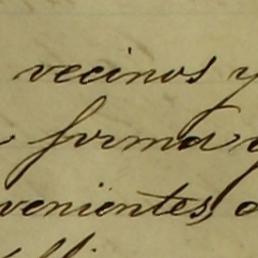 vecinos y
forma y
venientes,